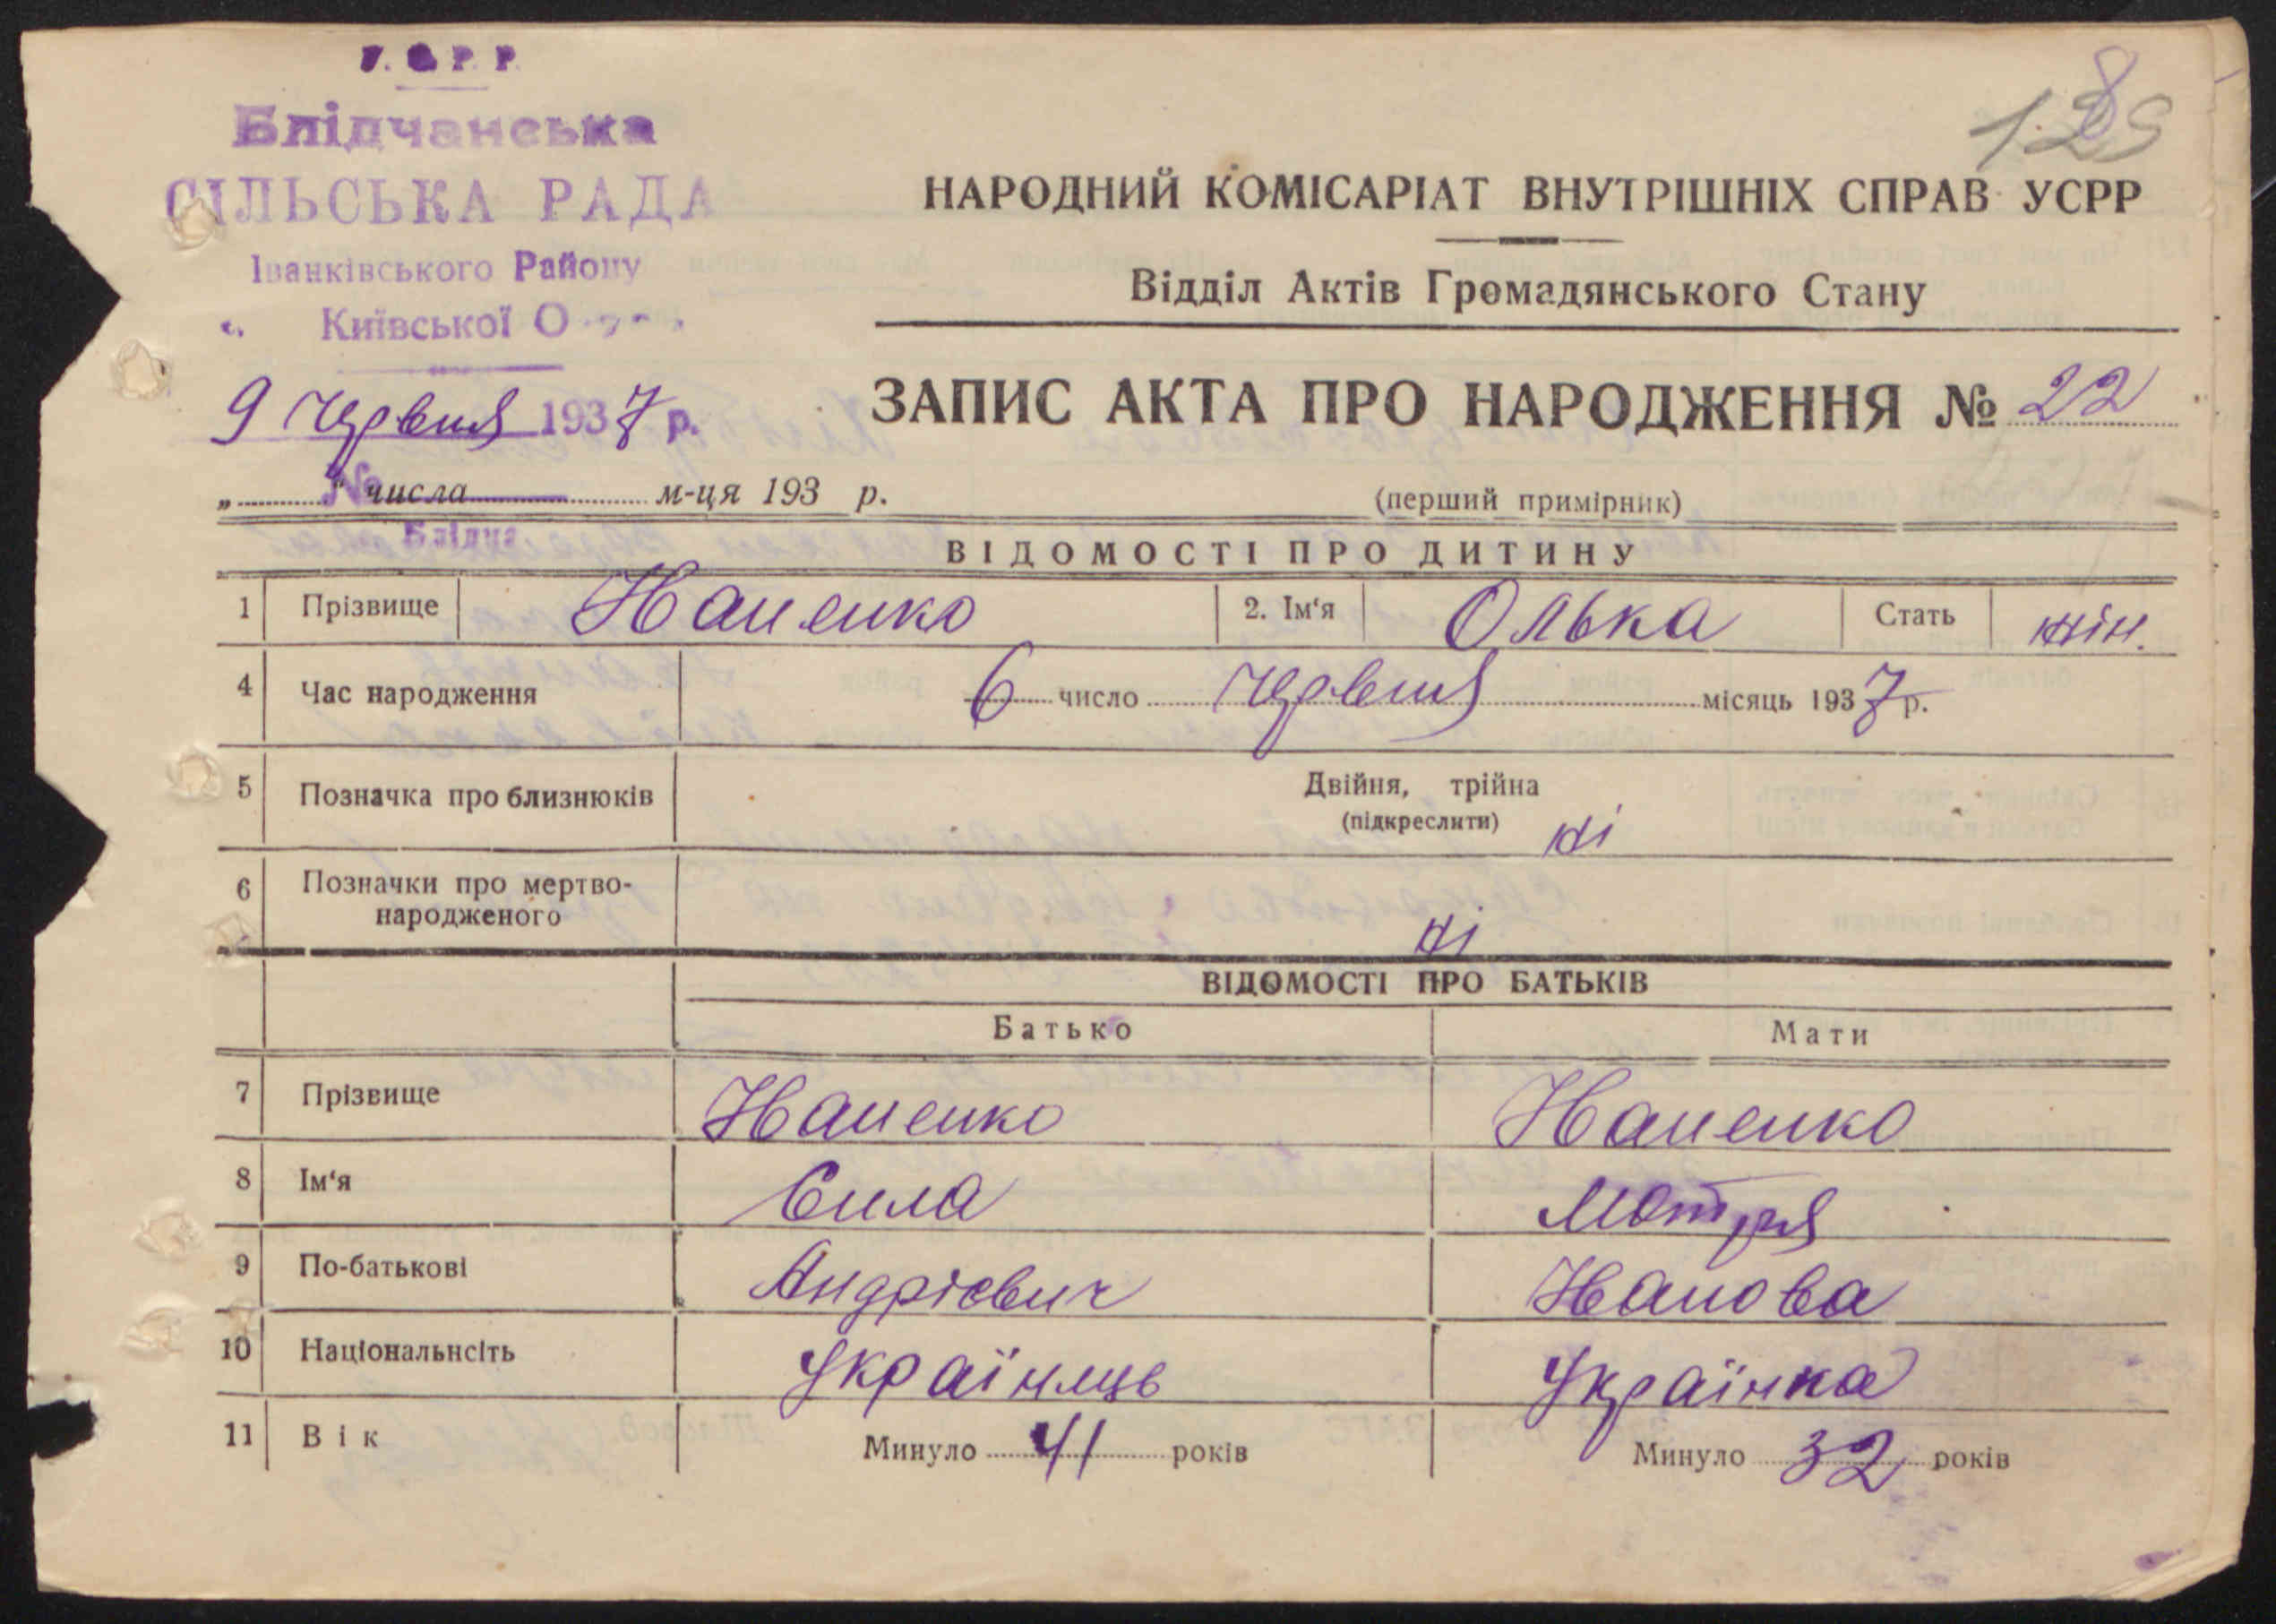 У. С. Р. Р.
Блідчанська
СІЛЬСЬКА РАДА
Іванківського Району
Київської О
9 Червня 1937 р.
№
Блідча
128
НАРОДНИЙ КОМІСАРІАТ ВНУТРІШНІХ СПРАВ УСРР
Відділ Актів Громадянського Стану
ЗАПИС АКТА ПРО НАРОДЖЕННЯ № 22
„ “ числа м-ця 193 р.
(перший примірник)
ВІДОМОСТІ ПРО ДИТИНУ
1 Прізвище Наненко 2. Ім‘я Олька Стать жін.
4 Час народження 6 число Червня місяць 1937 р.
5 Позначка про близнюків Двійня, трійна
(підкреслити) ні
6 Позначки про мертво-
народженого ні
ВІДОМОСТІ ПРО БАТЬКІВ
Батько Мати
7 Прізвище Наненко Наненко
8 Ім‘я Сила Мотря
9 По-батькові Андрієвич Іванова
10 Національнсіть Українець Українка
11 Вік Минуло 41 років Минуло 32 років